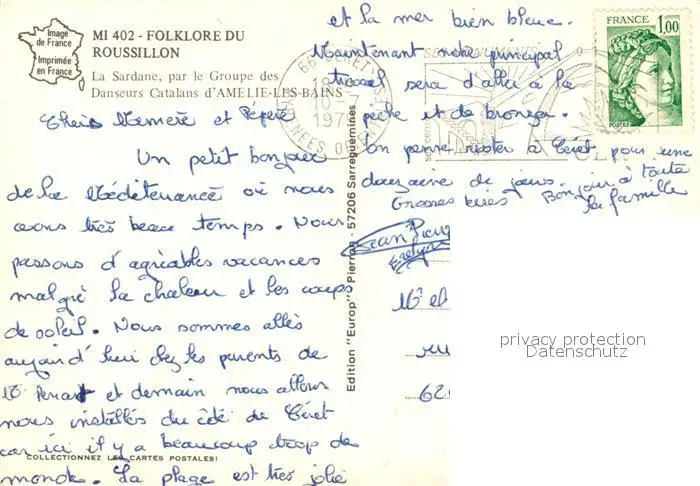 Image
de France
Imprimée
en France
MI 402 - FOLKLORE DU
ROUSSILLON
La Sardane, par le Groupe des
Danseurs Catalans d'AMELIE-LES-BAINS
Chers Mémère et Pépère
Un petit bonjour
de la Méditerranée où nous
avons très beau temps. Nous
passons d'agréables vacances
malgré la chaleur et les coups
de soleil. Nous sommes allés
aujourd'hui chez les parents de
et demain nous allons
nous installés du côté de Céret
car ici il y a beaucoup trop de
monde. La plage est très jolie
COLLECTIONNEZ LES CARTES POSTALES!
Edition "Europ" Pierron - 57206 Sarreguemines
et la mer bien bleue.
Maintenant notre principal
travail sera d'aller à la
pêche et de bronzer.
On pense rester à Céret pour une
douzaine de jours. Bonjour à toute
Grosses bises la famille
Jean Pierre
Evelyne
FRANCE
1,00
66 CERET
privacy protection
Datenschutz
62